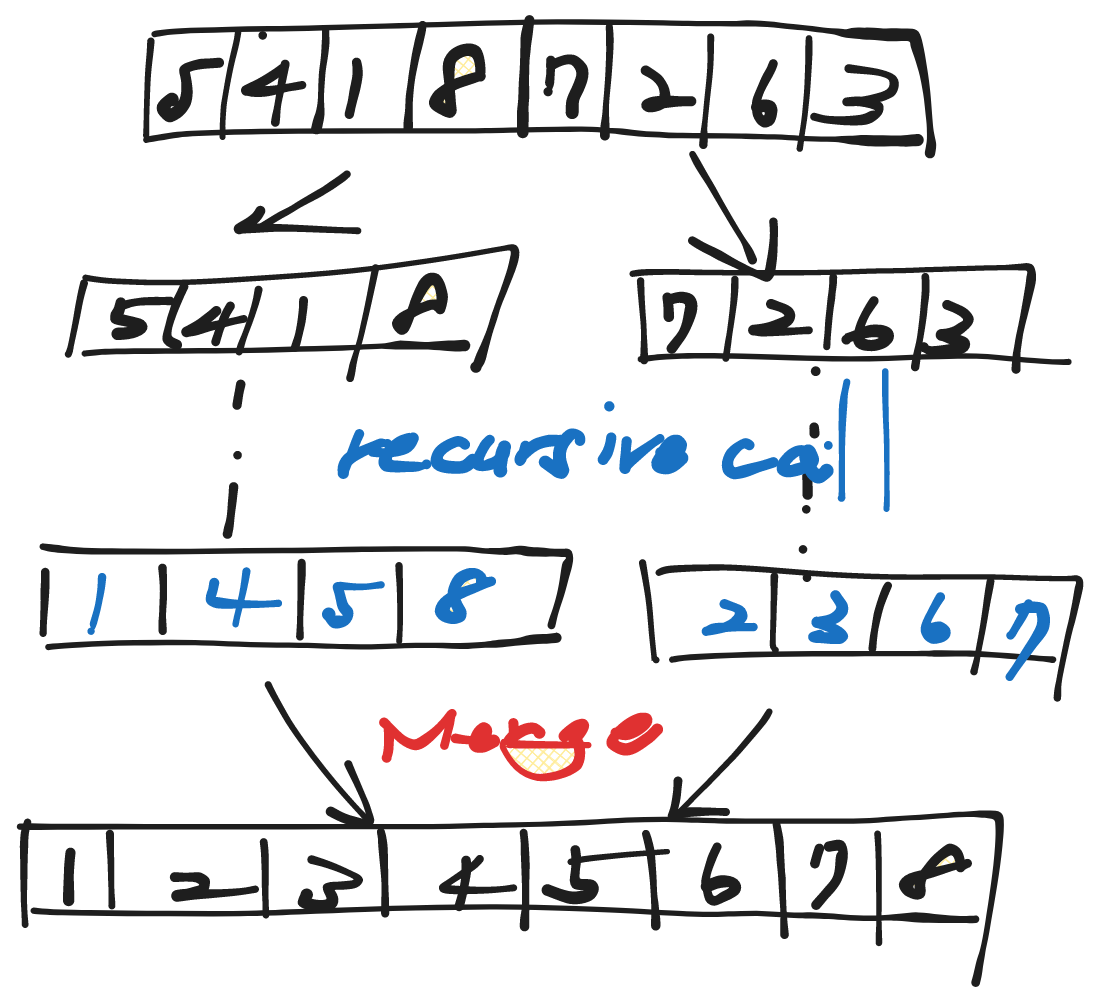 5 4 1 8 7 2 6 3
5 4 1 8
7 2 6 3
recursive call
1 4 5 8
2 3 6 7
Merge
1 2 3 4 5 6 7 8